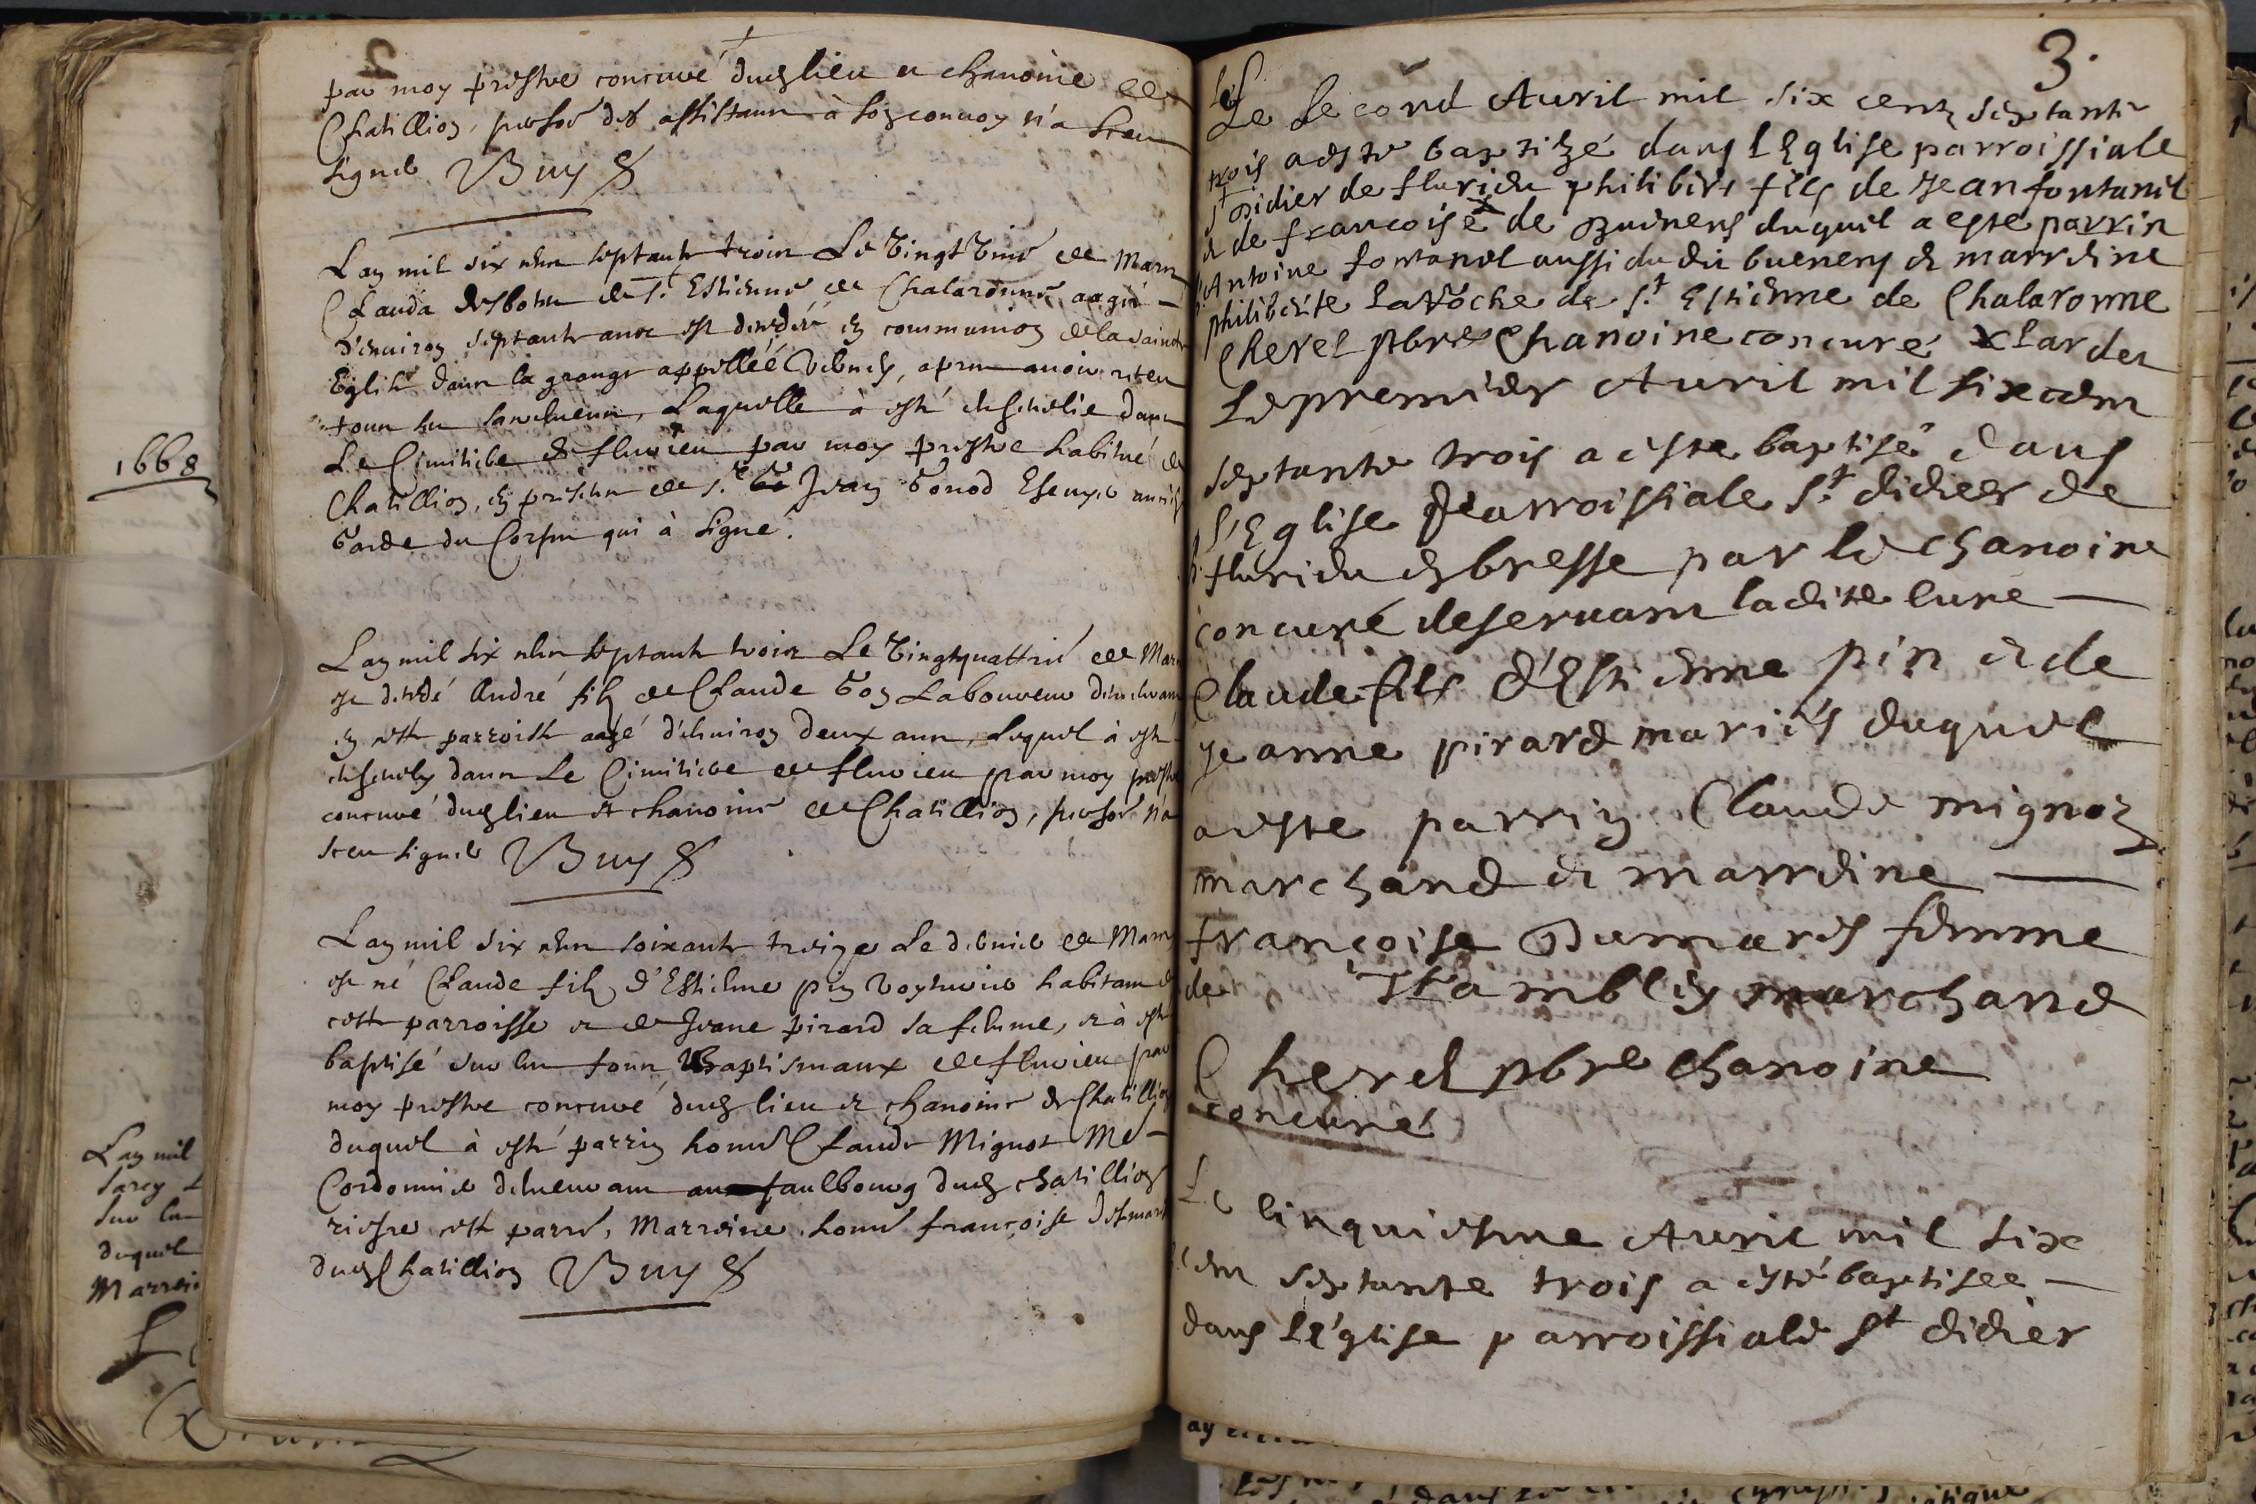 2
par moy prestre concuré dud lieu et chanoine de
Chatillion, persoe des assistans à son convoy n'a sceu
signer Buy
L'an mil six cens septante trois Le vingt de Mars
Clauda de St Estienne de Chalaronne aagée
d'environ septante ans est decedée en communion de la sainte
Eglise dans la grange appellée apres avoir receu
tous les sacremens, Laquelle à esté ensevelie dans
Le Cimitiere de fluirieu par moy prestre habitué de
Chatillion, en presence de Sr Jean Gonod Escuyer
Garde du Corps qui à signé.
L'an mil six cens septante trois Le vingtquattrie de Mars
est decedé André filz de Claude Laboureur demeurant
en cette parroisse aagé d'environ deux ans, Lequel à esté
ensevely dans Le Cimitiere de fluirieu par moy prestre
concuré dud lieu et chanoine de Chatillion, persoe n'a
sceu signer Buy
L'an mil six cens soixante treize Le dernier de Mars
est né Claude filz d'Estienne pin habitant
cette parroisse et de Jeane pirard sa femme, et à esté
baptisé sur les fons Baptismaux de fluirieu par
moy prestre concuré dud lieu et chanoine de Chatillion
duquel à esté parrin hone Claude Mignot Me
Cordonnier demeurant au faulbourg dud chatillion
riesre cette parre, Marreine hone françoise desmares
dud Chatillion Buy
1668
L'an mil
Sur les
duquel
Marrei
3.
Le Second Avril mil six cent septante
trois a esté baptizé dans l'Eglise parroissiale
St Didier de flurieu philibert fils de Jean fontanel
et de françoise de duquel a esté parrin
Antoine fontanel aussi dudit buenens et marreine
philiberte Laroche de St Estienne de Chalaronne
Cheret pbre Chanoine concuré
Le premier Avril mil six cens
septante trois a esté baptisé dans
l'Eglise Parroissiale St didier de
flurieu en bresse par le chanoine
concuré deservant ladite Cure
Claude fils d'Estienne pin et de
Jeanne pirard mariés duquel
a esté parrin Claude mignoz
marchand et marreine
françoise Dumares femme
de marchand
Cheret pbre chanoine
concuré
Le Cinquiesme Avril mil six
cens septante trois a esté baptisee
dans l'église parroissiale St didier